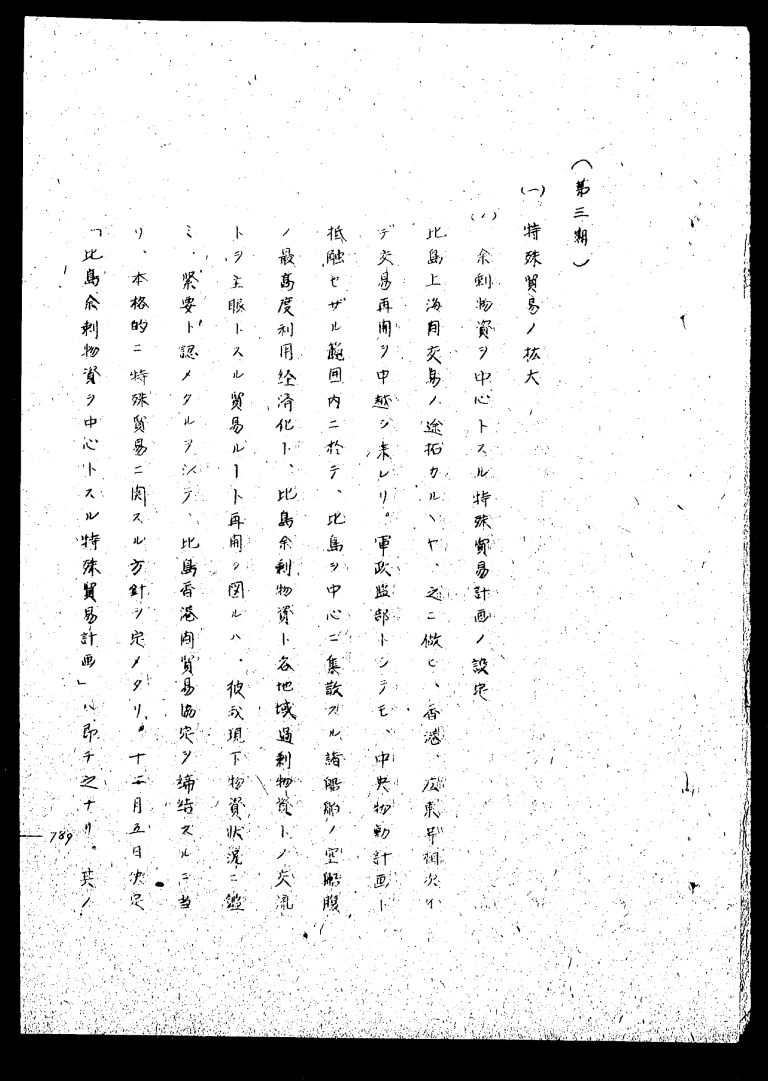 （第三期）
㈠ 特殊貿易ノ拡大
⑴ 余剰物資ヲ中心トスル特殊貿易計画ノ設定
比島上海間交易ノ途拓カルヽヤ、之ニ倣ヒ、香港、広東等相次イ
デ交易再開ヲ申越シ来レリ。軍政監部トシテモ、中央物動計画ト
抵触セザル範囲内ニ於テ、比島ヲ中心ニ集散スル諸船舶ノ空船腹
ノ最高度利用経済化ト、比島余剰物資ト各地域過剰物資トノ交流
トヲ主眼トスル貿易ルート再開ヲ図ルハ、彼我現下物資状況ニ鑑
ミ、緊要ト認メタルヲ以テ、比島香港間貿易協定ヲ締結スルニ当
リ、本格的ニ特殊貿易ニ関スル方針ヲ定メタリ。十二月五日決定
「比島余剰物資ヲ中心トスル特殊貿易計画」ハ即チ之ナリ。其ノ
789